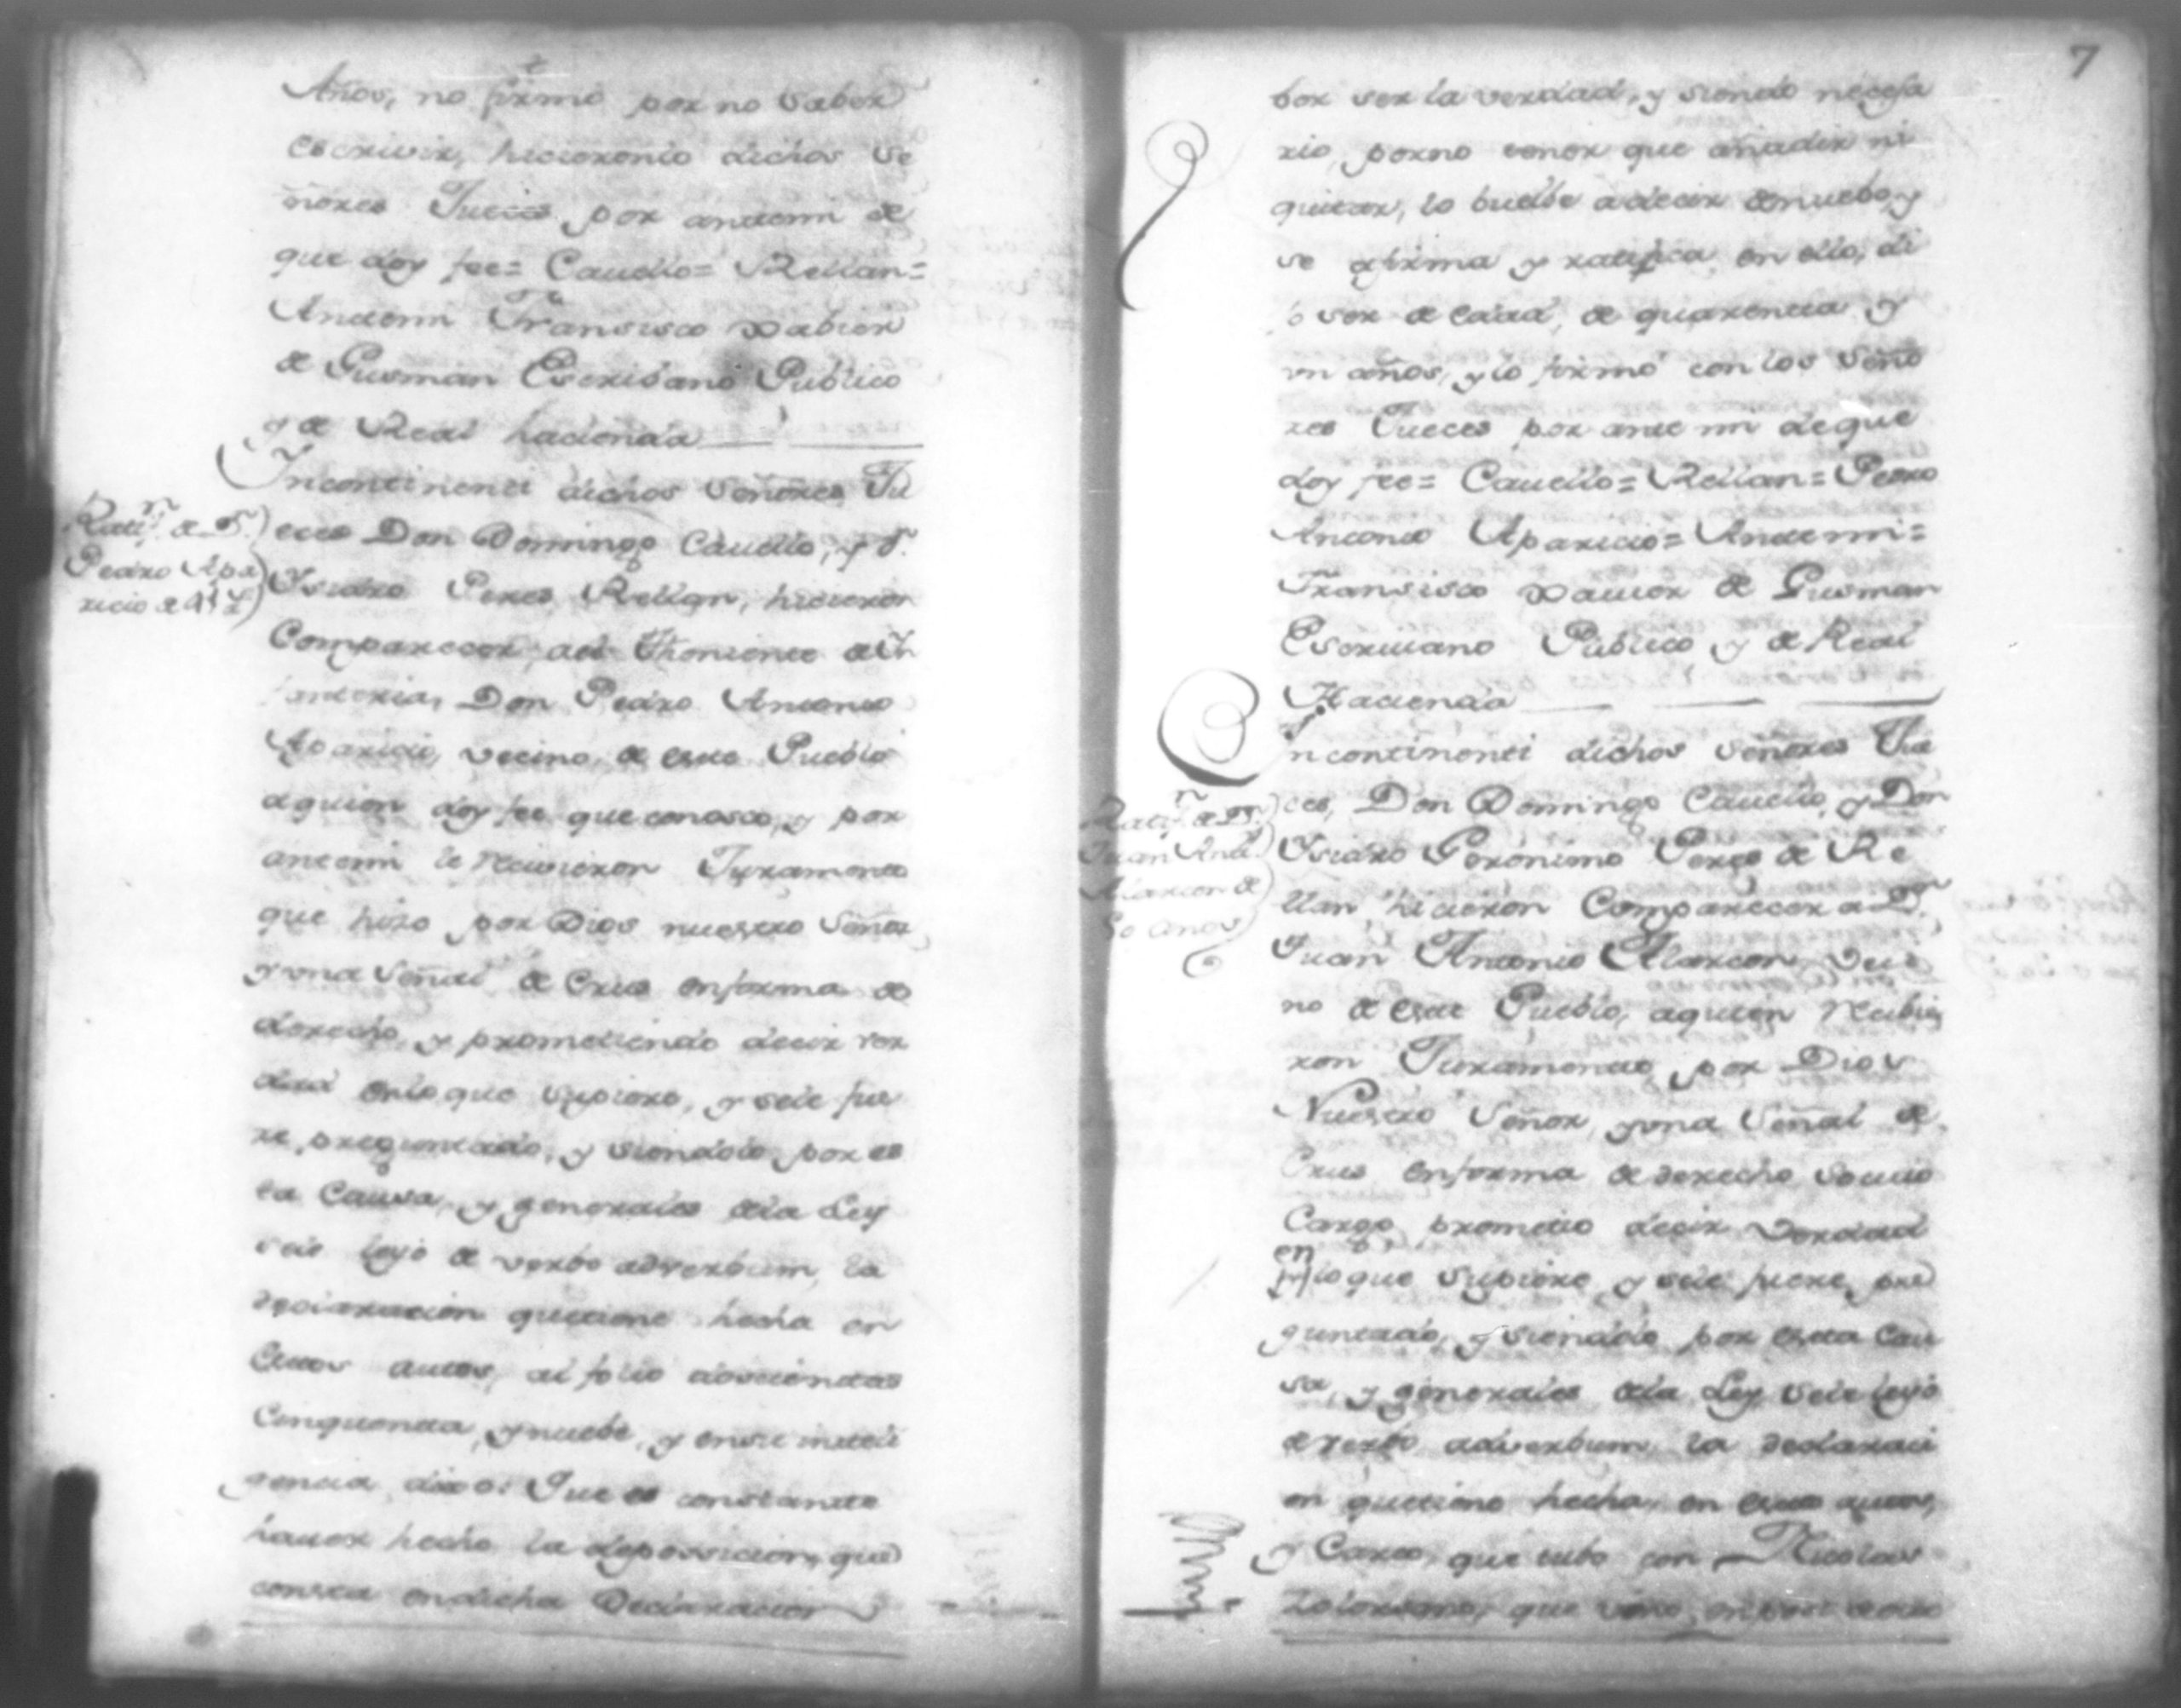 Años, no firmó por no Saber
escrivir, hicieronlo dichos Se
ñores Jueces por antemi de
que doy fee= Cauello= Rellan=
Antemi Fransisco Xabier
de Gusman Escribano Publico
y de Real hacienda
Incontinenti dichos Señores Ju
eces Don Domingo Cauello, y Dn.
Ysidro Peres Rellan, hicieron
Comparecer, al Theniente de In
fanteria, Don Pedro Antonio
Aparicio, vecino de este Pueblo
aquien doy fee que conosco, y por
antemi le recivieron Juramento
que hizo por Dios nuestro Señor
y una Señal de Crus enforma de
derecho, y prometiendo decir ver
dad enlo que supiere, y sele fue
re preguntado, y siendolo por es
ta Causa, y generales dela Ley
sele leyó de verbo adverbum, la
declaracion quetiene hecha en
estos autos, al folio doscientas
Cinquenta, ynuebe, y ensu inteli
gencia dixo: Que es constante
hauer hecho la deposicion, que
consta endicha Declaracion
Ratifn. de Dn.
Pedro Apa
ricio de 41
7
por ser la verdad, y siendo necesa
rio, porno tener que añadir ni
quitar, lo buelbe adecir denuebo, y
se afirma y ratifica en ello, di
o ser de edad, de quarenta y
un años, y lo firmó con los Seño
res Jueces por ante mi deque
doy fee= Cauello= Rellan= Pedro
Antonio Aparicio= Antemi=
Fransisco Xauier de Gusman
Escriuano Publico y de Real
Hacienda
Incontinenti dichos Señores Jue
ces, Don Domingo Cauello, y Don
Ysidro Geronimo Peres de Re
llan, hicieron Comparecer a Dn.
Juan Antonio Alarcon, Veci
no de este Pueblo, aquien recibie
ron Juramento, por Dios
Nuestro Señor, y una Señal de
Crus enforma de derecho, so cuio
Cargo, prometio decir Verdad
en lo que supiere, y sele fuere, pre
guntado, y siendolo por esta Cau
sa, y generales dela Ley, sele leyó
de verbo adverbum, la declaraci
on quetiene hecha, en estos autos,
y Careo, que tubo con Nicolas
que
Ratifn. de Dn.
Juan Anto.
Alarcon de
50 anos